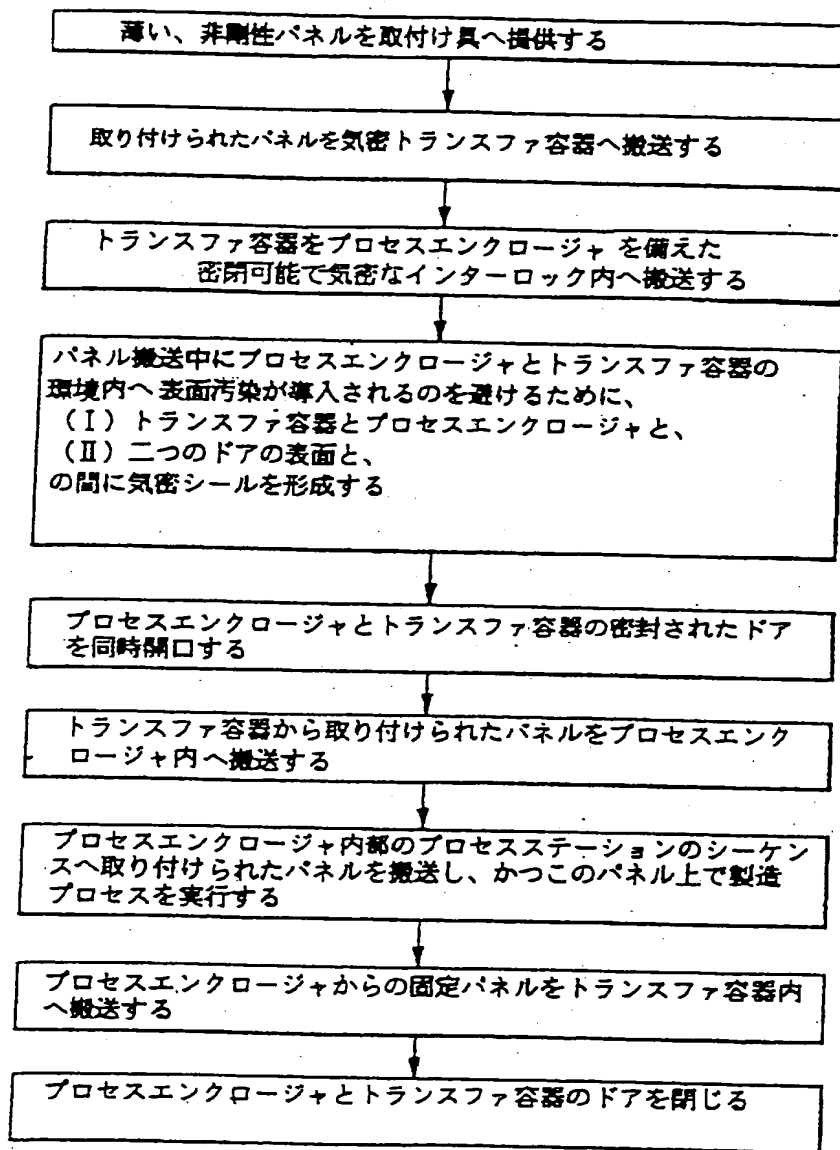 薄い、非剛性パネルを取付け具へ提供する
取り付けられたパネルを気密トランスファ容器へ搬送する
トランスファ容器をプロセスエンクロージャ を備えた
密閉可能で気密なインターロック内へ搬送する
パネル搬送中にプロセスエンクロージャとトランスファ容器の
環境内へ表面汚染が導入されるのを避けるために、
(Ⅰ)トランスファ容器とプロセスエンクロージャと、
(Ⅱ)二つのドアの表面と、
の間に気密シールを形成する
プロセスエンクロージャとトランスファ容器の密封されたドア
を同時開口する
トランスファ容器から取り付けられたパネルをプロセスエンク
ロージャ内へ搬送する
プロセスエンクロージャ内部のプロセスステーションのシーケン
スへ取り付けられたパネルを搬送し、かつこのパネル上で製造
プロセスを実行する
プロセスエンクロージャからの固定パネルをトランスファ容器内
へ搬送する
プロセスエンクロージャとトランスファ容器のドアを閉じる